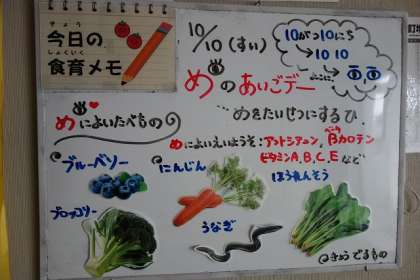 きょう
今日の
しょくいく
食育メモ
10/10 (すい)
めのあいごデー
めをたいせつにするひ.
10がつ10にち
→ 10 10
よこに、
めによいたべもの
めによいえいようそ：アントシアニン、βカロテン
ベータ
ビタミンA,B,C,E など
ブルーベリー
にんじん
ほうれんそう
ブロッコリー
うなぎ
きょうでるもの